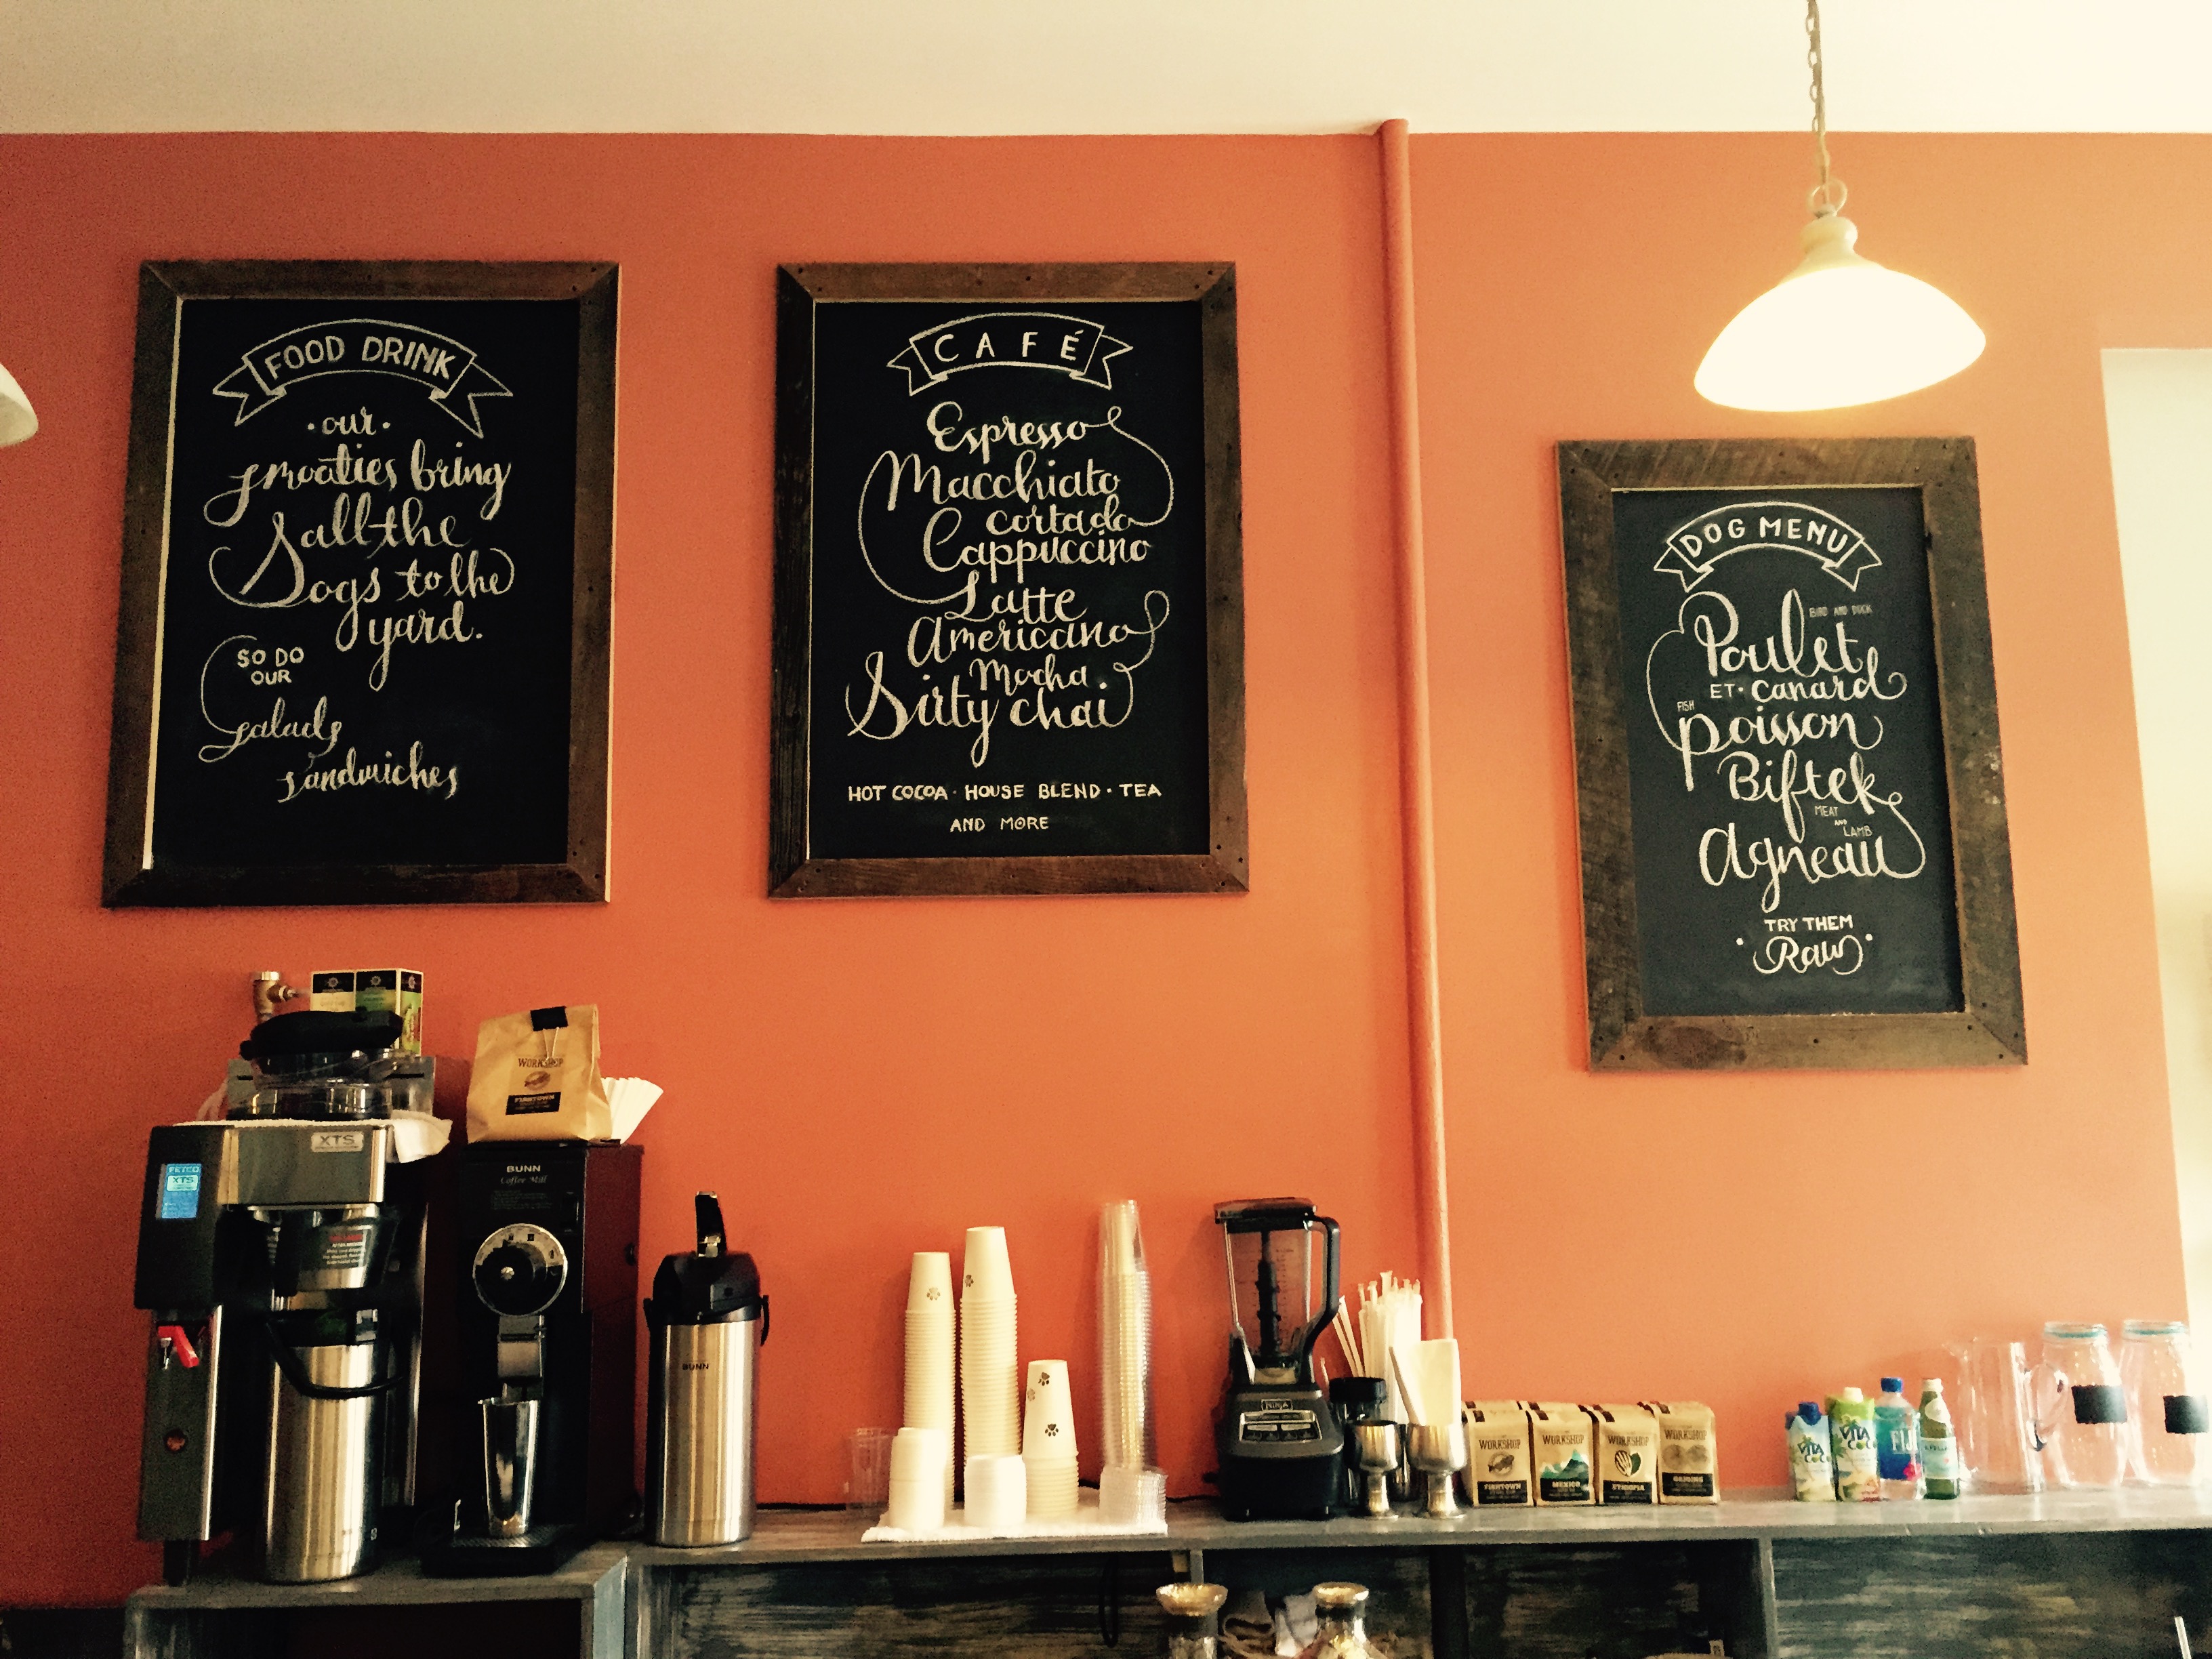 FOOD DRINK
• our •
smooties bring
all the
Dogs to the
yard.
SO DO
OUR
salads
sandwiches
CAFÉ
Espresso
Macchiato
cortado
Cappuccino
Latte
Americano
Mocha
Dirty chai
HOT COCOA · HOUSE BLEND · TEA
AND MORE
DOG MENU
BIRD AND DUCK
Poulet
ET • canard
FISH
poisson
Biftek
MEAT
AND
LAMB
Agneau
TRY THEM
• Raw •
XTS
FETCO
XTS
WORKSHOP
FISHTOWN
BUNN
Coffee Mill
BUNN
NINJA
WORKSHOP
FISHTOWN
WORKSHOP
MEXICO
WORKSHOP
ETHIOPIA
WORKSHOP
ORIGINS
VITA
COCO
VITA
COCO
FIJI